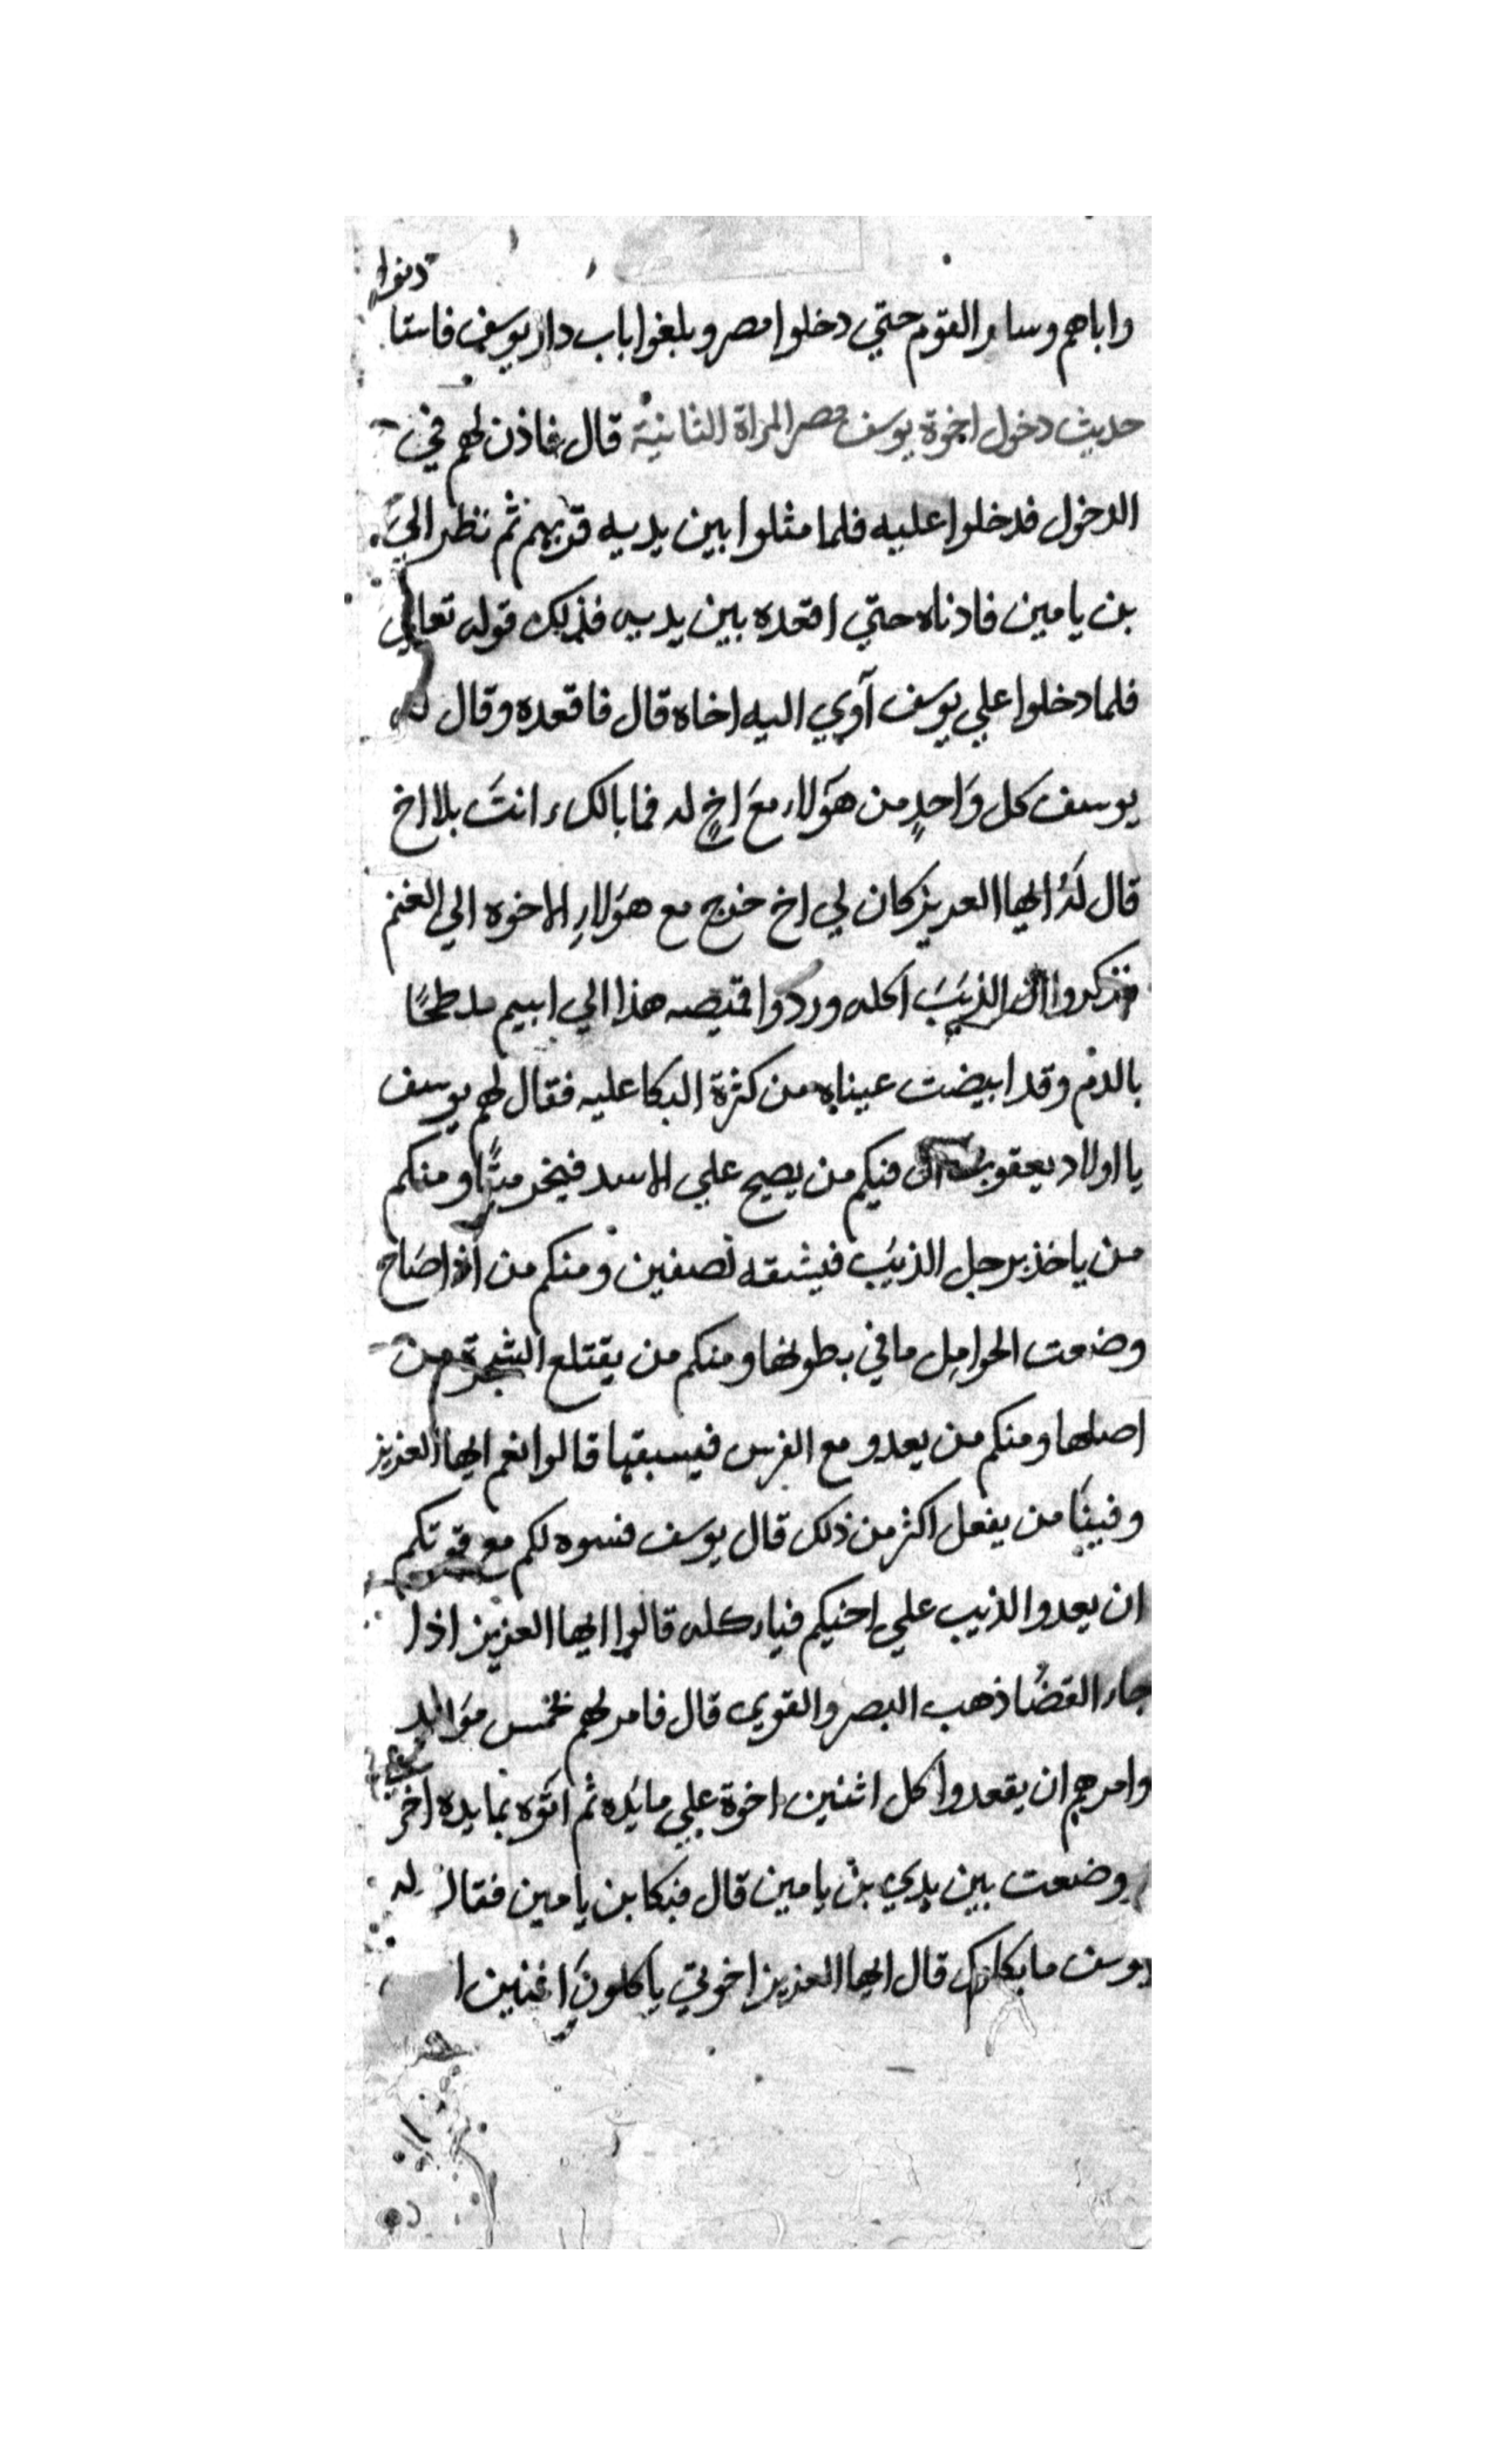 واباهم وساير القوم حتي دخلوا مصر وبلغوا باب دار يوسف فاستا
ذنوا
حديث دخول اخوة يوسف مصر المراة الثانية قال فاذن لهم في
الدخول فدخلوا عليه فلما مثلوا بين يديه قربهم ثم نظر الي
بن يامين فادناه حتي اقعده بين يديه فذلك قوله تعالي
فلما دخلوا علي يوسف آوي اليه اخاه قال فاقعده وقال له
يوسف كل وَاحدٍ من هَولاء مَع اخٍ له فما بالك انتَ بلا اخ
قال لَهُ ايها العزيز كان لي اخ خرج مع هَولاءِ الاخوه الي الغنم
فذكروا ان الذيَبَ اكله وردوا قميصه هذا الي ابيهم ملطخًا
بالدم وقد ابيضت عيناه من كثرة البكا عليه فقال لهم يوسف
يا اولاد يعقوب ان فيكم من يصيح علي الاسد فيخر ميتًا ومنكم
من ياخذ برجل الذيَب فيشقه نصفين ومنكم من اذا صَاح
وضعت الحوامِل ما في بطونها ومنكم من يقتلع الشجرة من
اصلها ومنكم من يعدو مع الفرس فيسبقها قالوا نعم ايها العزيز
وفينَا من يفعل اكثر من ذلك قال يوسف فسوه لكم مع قوتكم
ان يعدوا الذيب علي اخيكم فياركله قالوا ايها العزيز اذا
جاء القضَا ذهب البصر والقوي قال فامر لهم بخمس مَوايد
وامرهم ان يقعدوا كل اثنين اخوة علي مايَده ثم اتوه بمايده اخر
وضعت بين يدي بن يامين قال فبكا بن يامين فقال له
يوسف ما بكاوك قال ايها العزيز اخوتي ياكلونَ اثنين ا